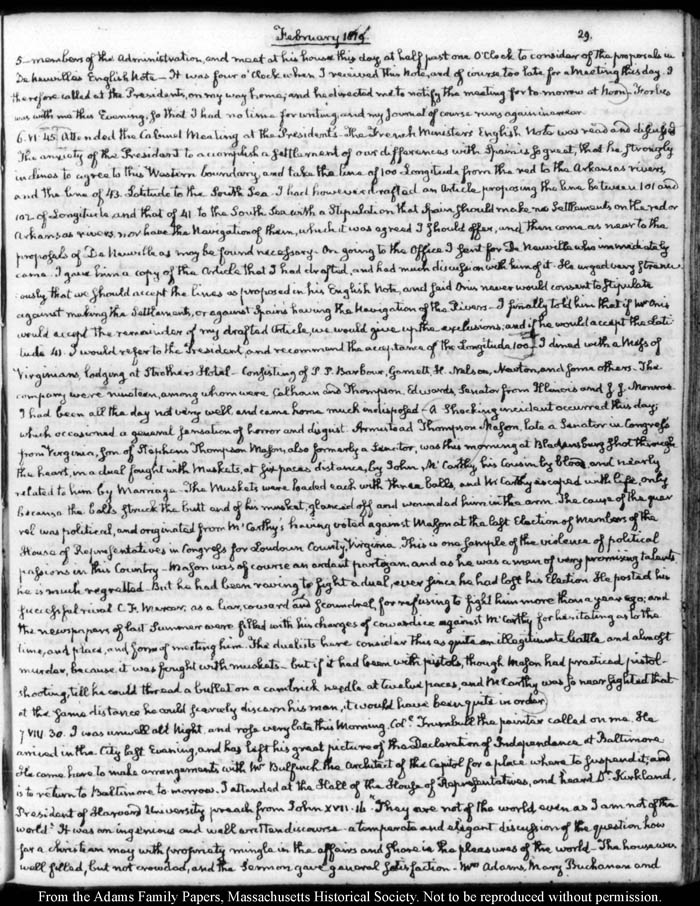 February 1819.
29.
5_ members of the Administration, and meet at his house this day, at half past one O'Clock to consider of the proposals in
De Neuville's English Note_ It was four o'Clock when I received this Note, and of course too late for a Meeting this day. I
therefore called at the Presidents, on my way home, and he directed me to notify the meeting for to-morrow at Noon_ Forbes
was with me this Evening, so that I had no time for writing, and my Journal of course runs again in arrear.
6. VI: 45. Attended the Cabinet Meeting at the President's. The French Minister's English Note was read and discussed
The anxiety of the President to accomplish a Settlement of our differences with Spain is so great, that he strongly
inclines to agree to this Western boundary, and take the line of 100 Longitude from the red to the Arkansas rivers,
and the line of 43. Latitude to the South Sea_ I had however drafted an Article, proposing the line between 101 and
102 of Longitude and that of 41 to the South Sea with a Stipulation that Spain should make no Settlements on the red or
Arkansas rivers, nor have the Navigation of them, which it was agreed I should offer, and then come as near to the
proposals of De Neuville as may be found necessary. On going to the Office I sent for De Neuville who immediately
came. I gave him a copy of the Article that I had drafted, and had much discussion with him of it_ He urged very strenu-
ously that we should accept the lines as proposed in his English Note, and said Onis never would consent to stipulate
against making the Settlements, or against Spain's having the Navigation of the Rivers_ I finally told him that if Mr Onis
would accept the remainder of my drafted Article, we would give up the exclusions, and if he would accept the Lati-
tude 41. I would refer to the President, and recommend the acceptance of the Longitude 100. I dined with a Mess of
Virginians, lodging at Strother's Hotel_ Consisting of P. P. Barbour, Garnett, H. Nelson, Newton, and some others. The
company were nineteen, among whom were Calhoun and Thompson, Edwards, Senator from Illinois and J. J. Monroe
I had been all the day not very well and came home much indisposed_ A Shocking incident occurred this day,
which occasioned a general sensation of horror and disgust. Armistead Thompson Mason, late a Senator in Congress
from Virginia, Son of Stephens Thompson Mason, also formerly a Senator, was this morning at Bladensburg shot through
the heart, in a duel fought with Muskets, at six paces distance, by John McCarthy, his Cousin by blood, and nearly
related to him by Marriage_ The Muskets were loaded each with three balls, and McCarthy escaped with life, only
because the balls struck the butt end of his musket, glanced off and wounded him in the arm. The cause of the quar
rel was political, and originated from McCarthy's having voted against Mason at the last Election of Members of the
House of Representatives in Congress for Loudoun County, Virginia. This is one sample of the violence of political
passions in this Country_ Mason was of course an ardent partizan, and as he was a man of very promising talents
he is much regretted_ But he had been raving to fight a duel, ever since he had lost his Election. He posted his
successful rival C. F. Mercer, as a liar, coward and scoundrel, for refusing to fight him more than a year ago; and
the newspapers of last Summer were filled with his charges of cowardice against McCarthy for hesitating as to the
time, and place, and form of meeting him. The duelists have consider this as quite an illegitimate battle and almost
murder, because it was fought with muskets_ but if it had been with pistols, though Mason had practiced pistol-
shooting, till he could thread a bullet on a cambrick needle at twelve paces, and McCarthy was so near sighted that
at the same distance he could scarcely discern his man, it would have been quite in order
7 VIII. 30. I was unwell all Night, and rose very late this Morning. Coll. Trumbull the painter called on me. He
arrived in the City last Evening, and has left his great picture of the Declaration of Independence at Baltimore.
He came here to make arrangements with Mr Bulfinch the Architect of the Capitol for a place where to suspend it; and
is to return to Baltimore to morrow. I attended at the Hall of the House of Representatives, and heard Dr. Kirkland,
President of Harvard University preach from John XVII. 16 "They are not of the world even as I am not of the
world". It was an ingenious and well written discourse_ a temperate and elegant discussion of the question how
far a christian may with propriety mingle in the affairs and share in the pleasures of the world_ The house was
well filled, but not crowded, and the Sermon gave general satisfaction_ Mrs Adams, Mary Buchanan and
From the Adams Family Papers, Massachusetts Historical Society. Not to be reproduced without permission.